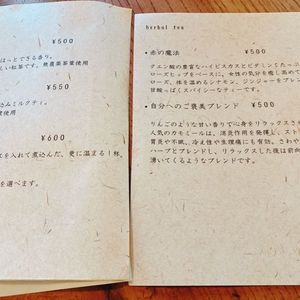 ¥500
ほっとできる香り。
しい紅茶です。無農薬茶葉使用
¥550
さみミルクティ。
使用
¥600
スを入れて煮込んだ、更に温まる1杯。
を選べます。
herbal tea
・赤の魔法 ¥500
クエン酸の豊富なハイビスカスとビタミン
ローズヒップをベースに、女性の気分を癒し高め
ローズ、体を温めるシナモン、ジンジャーをブレ
甘酸っぱくスパイシーなティーです。
・自分へのご褒美ブレンド ¥500
りんごのような甘い香りで心身をリラックスさ
人気のカモミールは、消炎作用を発揮し、スト
胃炎や不眠、冷え性や生理痛にも有効。さわや
ハーブとブレンドし、リラックスした後は前向
湧いてくるようなブレンドです。